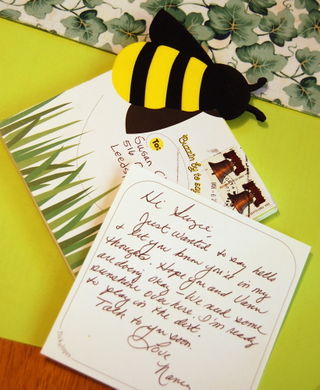 To:
Susan
516
Leeds
Buzzin by to say
Hi Suzie
Just wanted to say hello
& let you know you're in my
thoughts. Hope you and Vern
are doing okay. We need some
sunshine over here. I'm ready
to play in the dirt.
Talk to you soon.
Love
Nancy